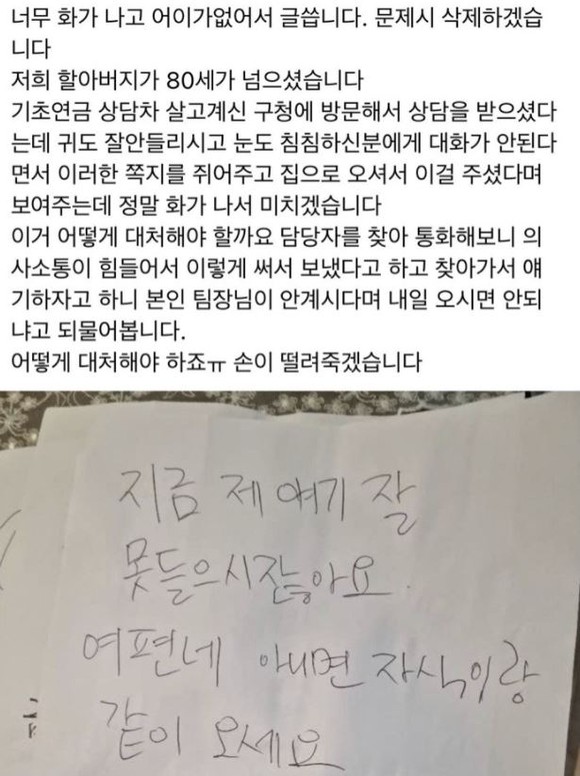 너무 화가 나고 어이가없어서 글씁니다. 문제시 삭제하겠습
니다
저희 할아버지가 80세가 넘으셨습니다
기초연금 상담차 살고계신 구청에 방문해서 상담을 받으셨다
는데 귀도 잘안들리시고 눈도 침침하신분에게 대화가 안된다
면서 이러한 쪽지를 쥐어주고 집으로 오셔서 이걸 주셨다며
보여주는데 정말 화가 나서 미치겠습니다
이거 어떻게 대처해야 할까요 담당자를 찾아 통화해보니 의
사소통이 힘들어서 이렇게 써서 보냈다고 하고 찾아가서 얘
기하자고 하니 본인 팀장님이 안계시다며 내일 오시면 안되
냐고 되물어봅니다.
어떻게 대처해야 하죠ㅠ 손이 떨려죽겠습니다
지금 제 얘기 잘
못들으시잖아요.
여편네 아니면 자식이랑
같이 오세요